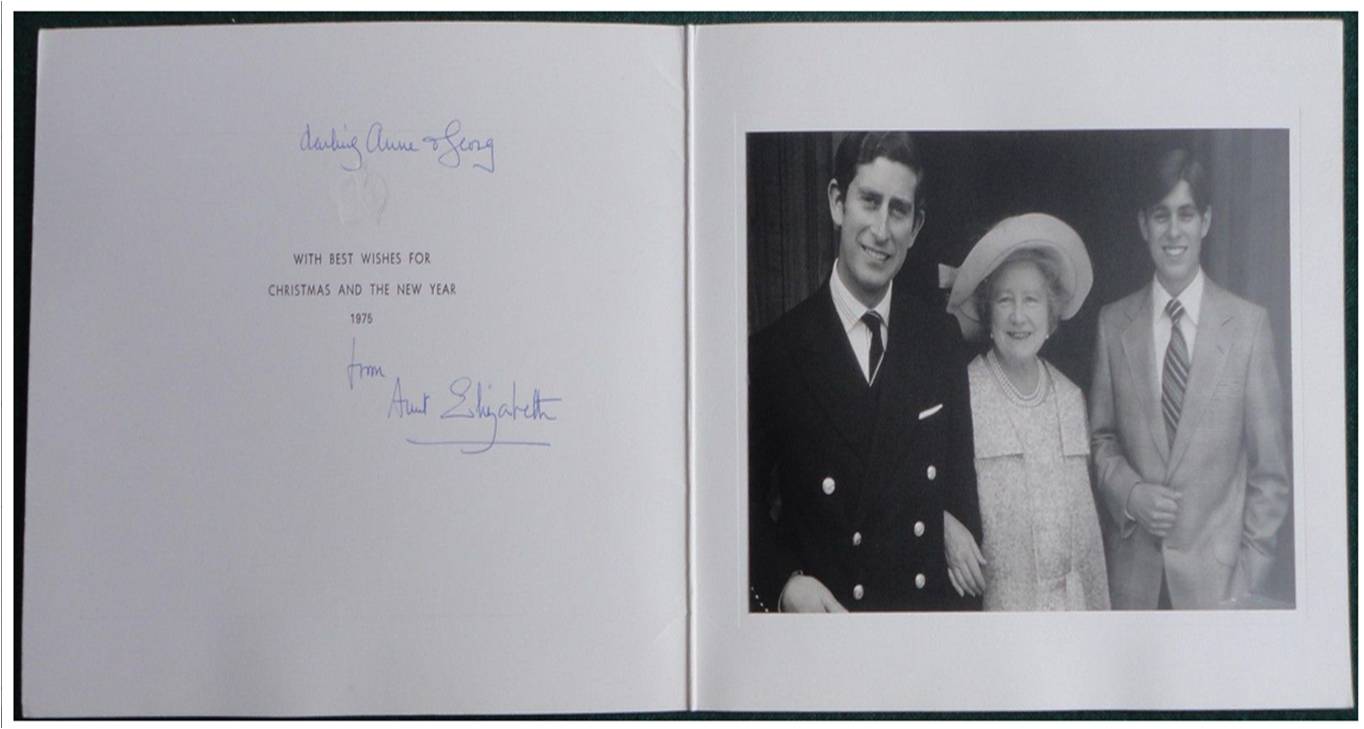 darling Anne & Georg
WITH BEST WISHES FOR
CHRISTMAS AND THE NEW YEAR
1975
from
Aunt Elizabeth